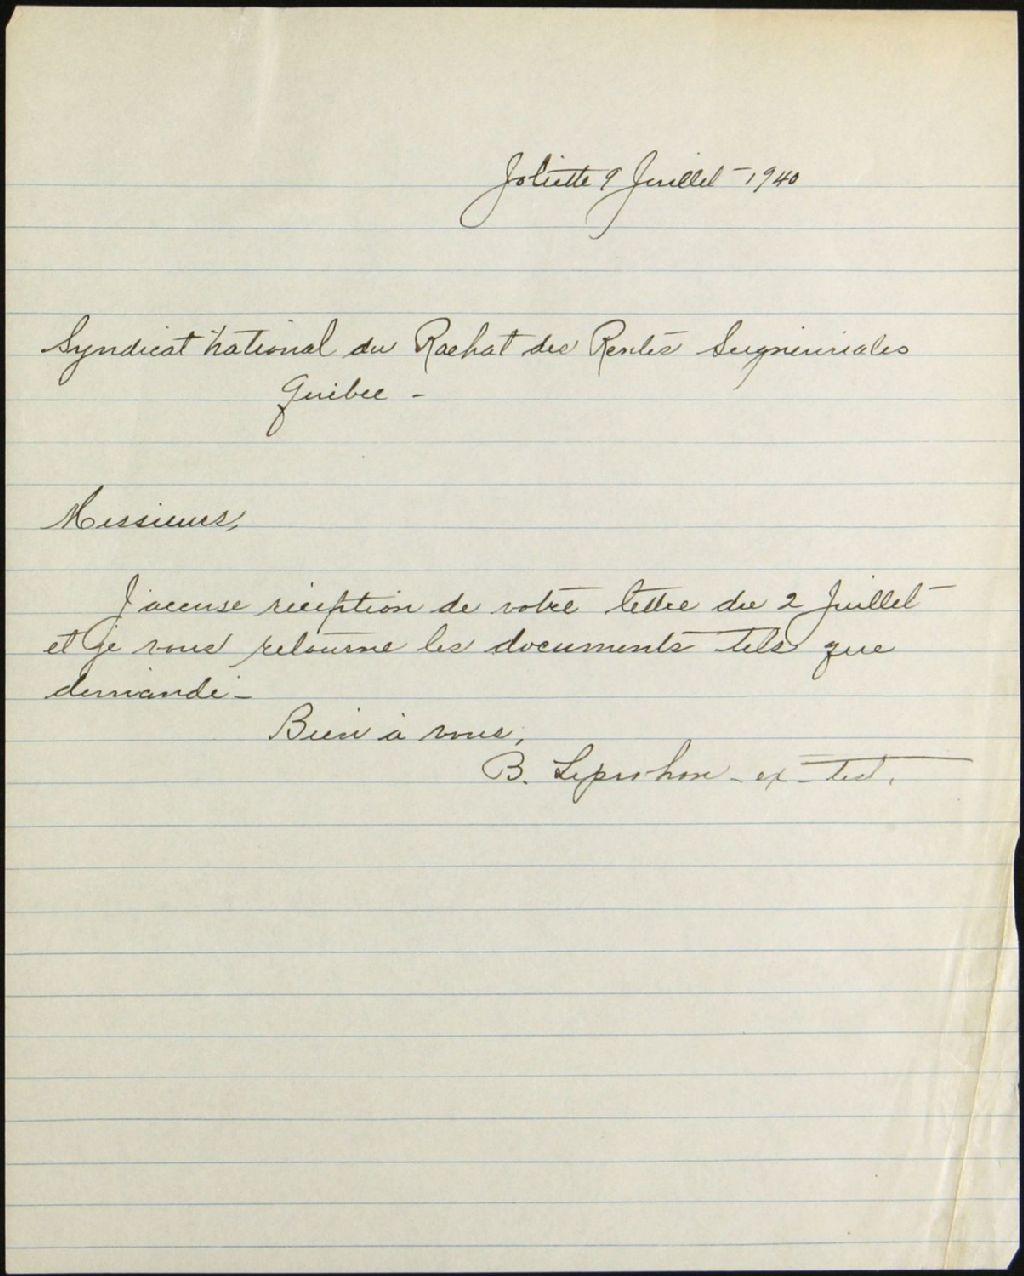 Joliette 9 Juillet - 1940
Syndicat National du Rachat des Rentes Seigneuriales
Québec -
Messieurs,
J'accuse réception de votre lettre du 2 Juillet
et je vous retourne les documents tels que
demandé -
Bien à vous,
B. Leprohon - ex - test.